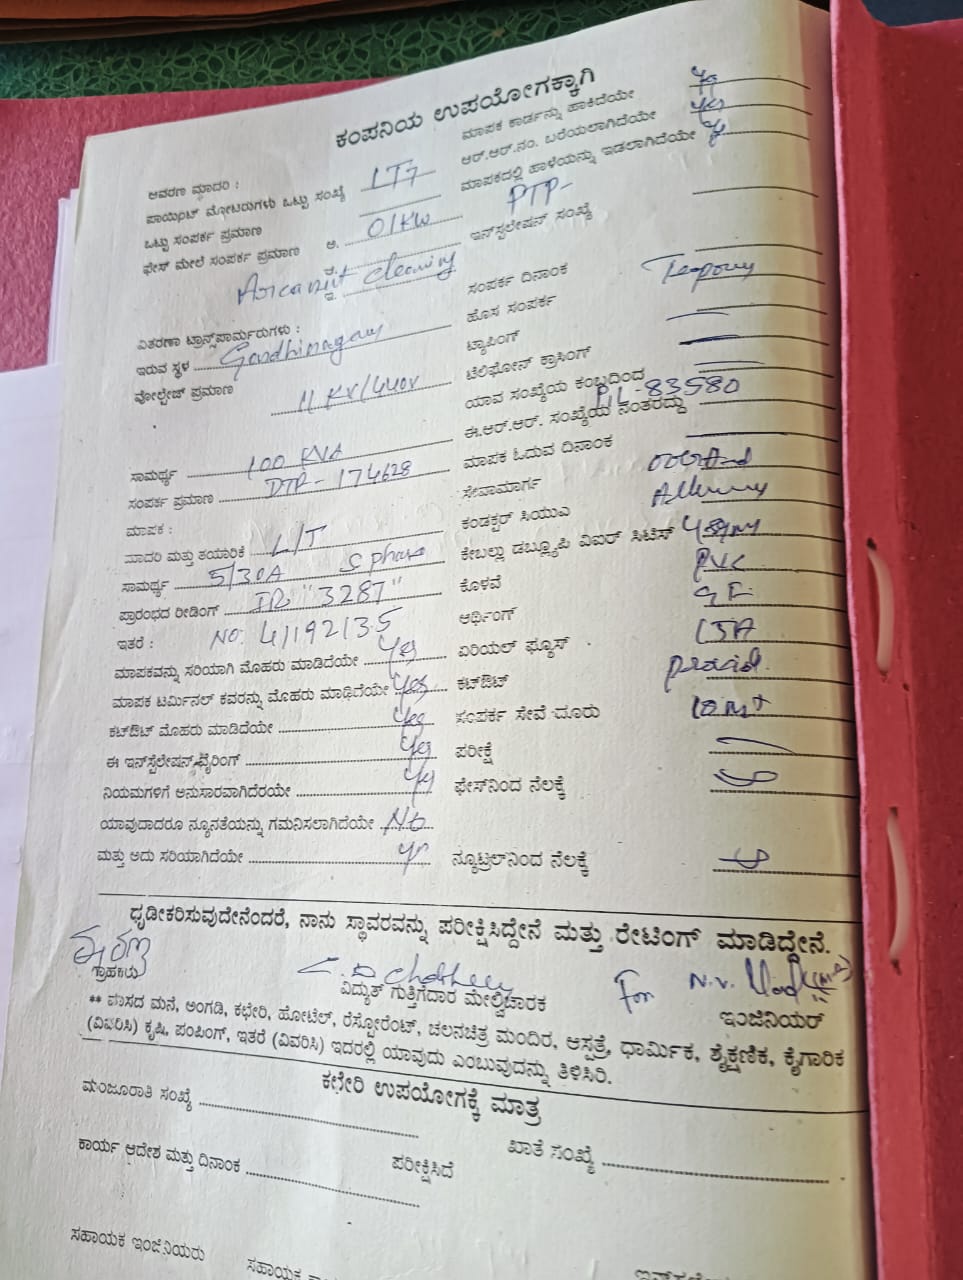 ಕಂಪನಿಯ ಉಪಯೋಗಕ್ಕಾಗಿ
ಆವರಣ ಮಾದರಿ : LT7
ಪಾಯಿಂಟ್ ಮೋಟರುಗಳು ಒಟ್ಟು ಸಂಖ್ಯೆ
ಒಟ್ಟು ಸಂಪರ್ಕ ಪ್ರಮಾಣ ಅ. 01KW
ಫೇಸ್ ಮೇಲೆ ಸಂಪರ್ಕ ಪ್ರಮಾಣ
Arecanut cleaning
ವಿತರಣಾ ಟ್ರಾನ್ಸ್‌ಪಾರ್ಮರುಗಳು :
ಇರುವ ಸ್ಥಳ Gandhinagar
ವೋಲ್ಟೇಜ್ ಪ್ರಮಾಣ 11 KV/440V
ಸಾಮರ್ಥ್ಯ 100 KVA
ಸಂಪರ್ಕ ಪ್ರಮಾಣ DTP- 174628
ಮಾಪಕ :
ಮಾದರಿ ಮತ್ತು ತಯಾರಿಕೆ L/T
ಸಾಮರ್ಥ್ಯ 5/30A
ಪ್ರಾರಂಭದ ರೀಡಿಂಗ್ IR "3287"
ಇತರೆ : NO. 4119213.5
ಮಾಪಕವನ್ನು ಸರಿಯಾಗಿ ಮೊಹರು ಮಾಡಿದೆಯೇ Yes
ಮಾಪಕ ಟರ್ಮಿನಲ್ ಕವರನ್ನು ಮೊಹರು ಮಾಡಿದೆಯೇ Yes
ಕಟ್‌ಔಟ್ ಮೊಹರು ಮಾಡಿದೆಯೇ Yes
ಈ ಇನ್‌ಸ್ಟಲೇಷನ್ ವೈರಿಂಗ್ Yes
ನಿಯಮಗಳಿಗೆ ಅನುಸಾರವಾಗಿದೆರಯೇ Yes
ಯಾವುದಾದರೂ ನ್ಯೂನತೆಯನ್ನು ಗಮನಿಸಲಾಗಿದೆಯೇ No
ಮತ್ತು ಅದು ಸರಿಯಾಗಿದೆಯೇ Yes
ಮಾಪಕ ಕಾರ್ಡನ್ನು ಹಾಕಿದೆಯೇ Yes
ಆರ್.ಆರ್.ನಂ. ಬರೆಯಲಾಗಿದೆಯೇ Yes
ಮಾಪಕದಲ್ಲಿ ಹಾಳೆಯನ್ನು ಇಡಲಾಗಿದೆಯೇ
ಇನ್‌ಸ್ಟಲೇಷನ್ ಸಂಖ್ಯೆ
ಸಂಪರ್ಕ ದಿನಾಂಕ
ಹೊಸ ಸಂಪರ್ಕ
ಟ್ಯಾಪಿಂಗ್
ಟೆಲಿಫೋನ್ ಕ್ರಾಸಿಂಗ್
ಯಾವ ಸಂಖ್ಯೆಯ ಕಂಬದಿಂದ
ಈ.ಆರ್.ಆರ್. ಸಂಖ್ಯೆಯ ನಂತರದ್ದು PL-83580
ಮಾಪಕ ಓದುವ ದಿನಾಂಕ
ಸೇವಾಮಾರ್ಗ
ಕಂಡಕ್ಟರ್ ಸಿಯುಎ
ಕೇಬಲ್ಲು ಡಬ್ಲ್ಯೂಪಿ ವಿಐರ್ ಸಿಟಿಸ್
ಕೊಳವೆ PVC
ಆರ್ಥಿಂಗ್
ಏರಿಯಲ್ ಫ್ಯೂಸ್ 15A
ಕಟ್‌ಔಟ್
ಸಂಪರ್ಕ ಸೇವೆ ದೂರು
ಪರೀಕ್ಷೆ
ಫೇಸ್‌ನಿಂದ ನೆಲಕ್ಕೆ
ನ್ಯೂಟ್ರಲ್‌ನಿಂದ ನೆಲಕ್ಕೆ
ಧೃಡೀಕರಿಸುವುದೇನೆಂದರೆ, ನಾನು ಸ್ಥಾವರವನ್ನು ಪರೀಕ್ಷಿಸಿದ್ದೇನೆ ಮತ್ತು ರೇಟಿಂಗ್ ಮಾಡಿದ್ದೇನೆ.
ಗ್ರಾಹಕರು ವಿದ್ಯುತ್ ಗುತ್ತಿಗೆದಾರ ಮೇಲ್ವಿಚಾರಕ For ಇಂಜಿನಿಯರ್
** ವಾಸದ ಮನೆ, ಅಂಗಡಿ, ಕಛೇರಿ, ಹೋಟೆಲ್, ರೆಸ್ಟೋರೆಂಟ್, ಚಲನಚಿತ್ರ ಮಂದಿರ, ಆಸ್ಪತ್ರೆ, ಧಾರ್ಮಿಕ, ಶೈಕ್ಷಣಿಕ, ಕೈಗಾರಿಕ
(ವಿವರಿಸಿ) ಕೃಷಿ, ಪಂಪಿಂಗ್, ಇತರೆ (ವಿವರಿಸಿ) ಇದರಲ್ಲಿ ಯಾವುದು ಎಂಬುವುದನ್ನು ತಿಳಿಸಿರಿ.
ಕಛೇರಿ ಉಪಯೋಗಕ್ಕೆ ಮಾತ್ರ
ಮಂಜೂರಾತಿ ಸಂಖ್ಯೆ ಖಾತೆ ಸಂಖ್ಯೆ
ಕಾರ್ಯ ಆದೇಶ ಮತ್ತು ದಿನಾಂಕ ಪರೀಕ್ಷಿಸಿದೆ
ಸಹಾಯಕ ಇಂಜಿನಿಯರು ಸಹಾಯಕ